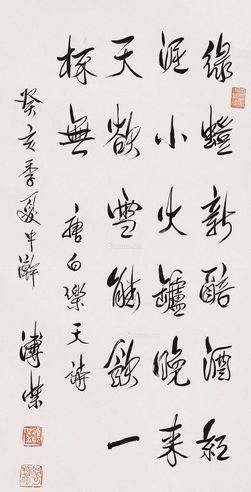 綠螘新醅酒紅
泥小火鑪晚来
天欲雪能飲一
杯無
唐白樂天詩
癸亥季夏中澣
溥傑